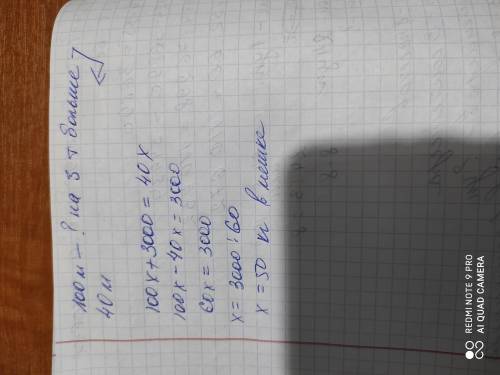 100 м – ? на 3 т больше
40 м
100x + 3000 = 40x
100x – 40x = 3000
60x = 3000
x = 3000 : 60
x = 50 кг в мешке
REDMI NOTE 9 PRO
AI QUAD CAMERA